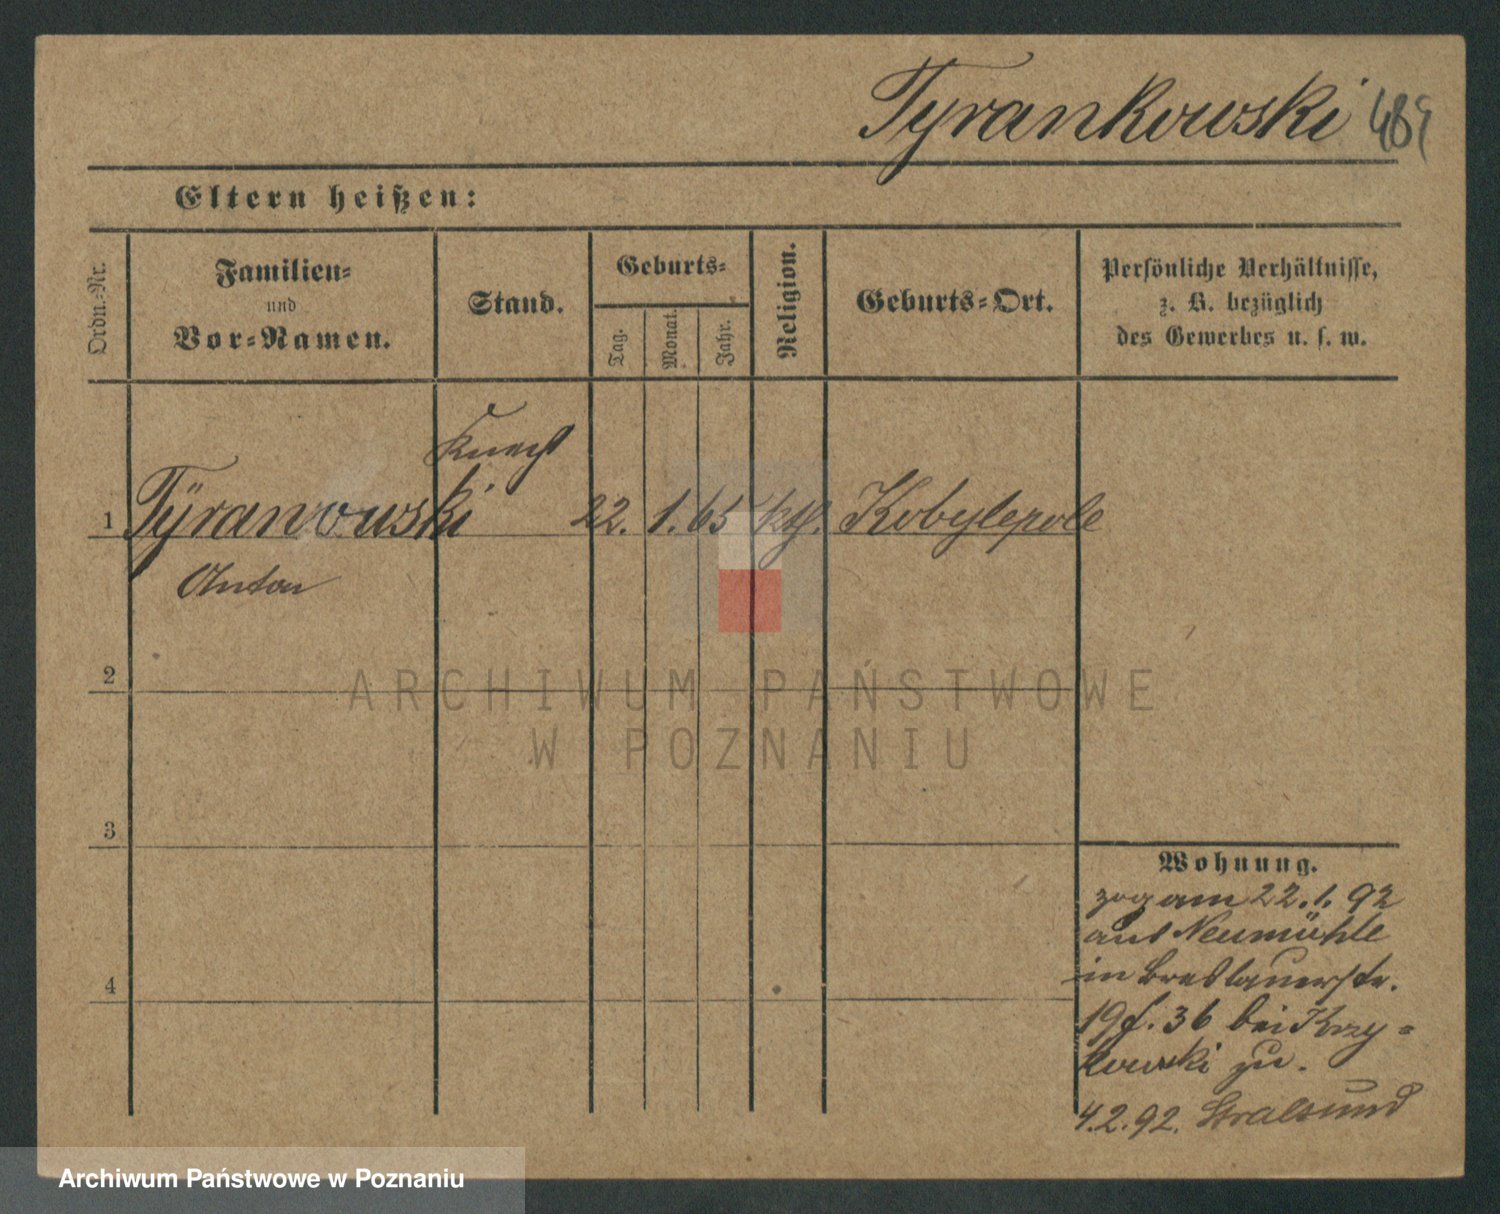 Tyrankowski
Eltern heißen:
Ordn.-Nr.
Familien-
und
Vor-Namen.
Stand.
Geburts-
Tag.
Monat.
Jahr.
Religion.
Geburts-Ort.
Persönliche Verhältnisse,
z. B. bezüglich
des Gewerbes u. s. w.
Knecht
1 Tÿranowski 22. 1. 65 kth. Kobylepole
Anton
2
3
4
Wohnung.
zog am 22. 1. 92
aus Neumühle
in Breslauerstr.
19 f. 36 bei Krzy-
kowski zu.
4.2.92. Stralsund
ARCHIWUM PAŃSTWOWE
W POZNANIU
Archiwum Państwowe w Poznaniu